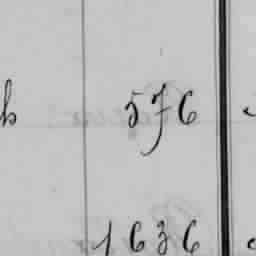 h 576
1636